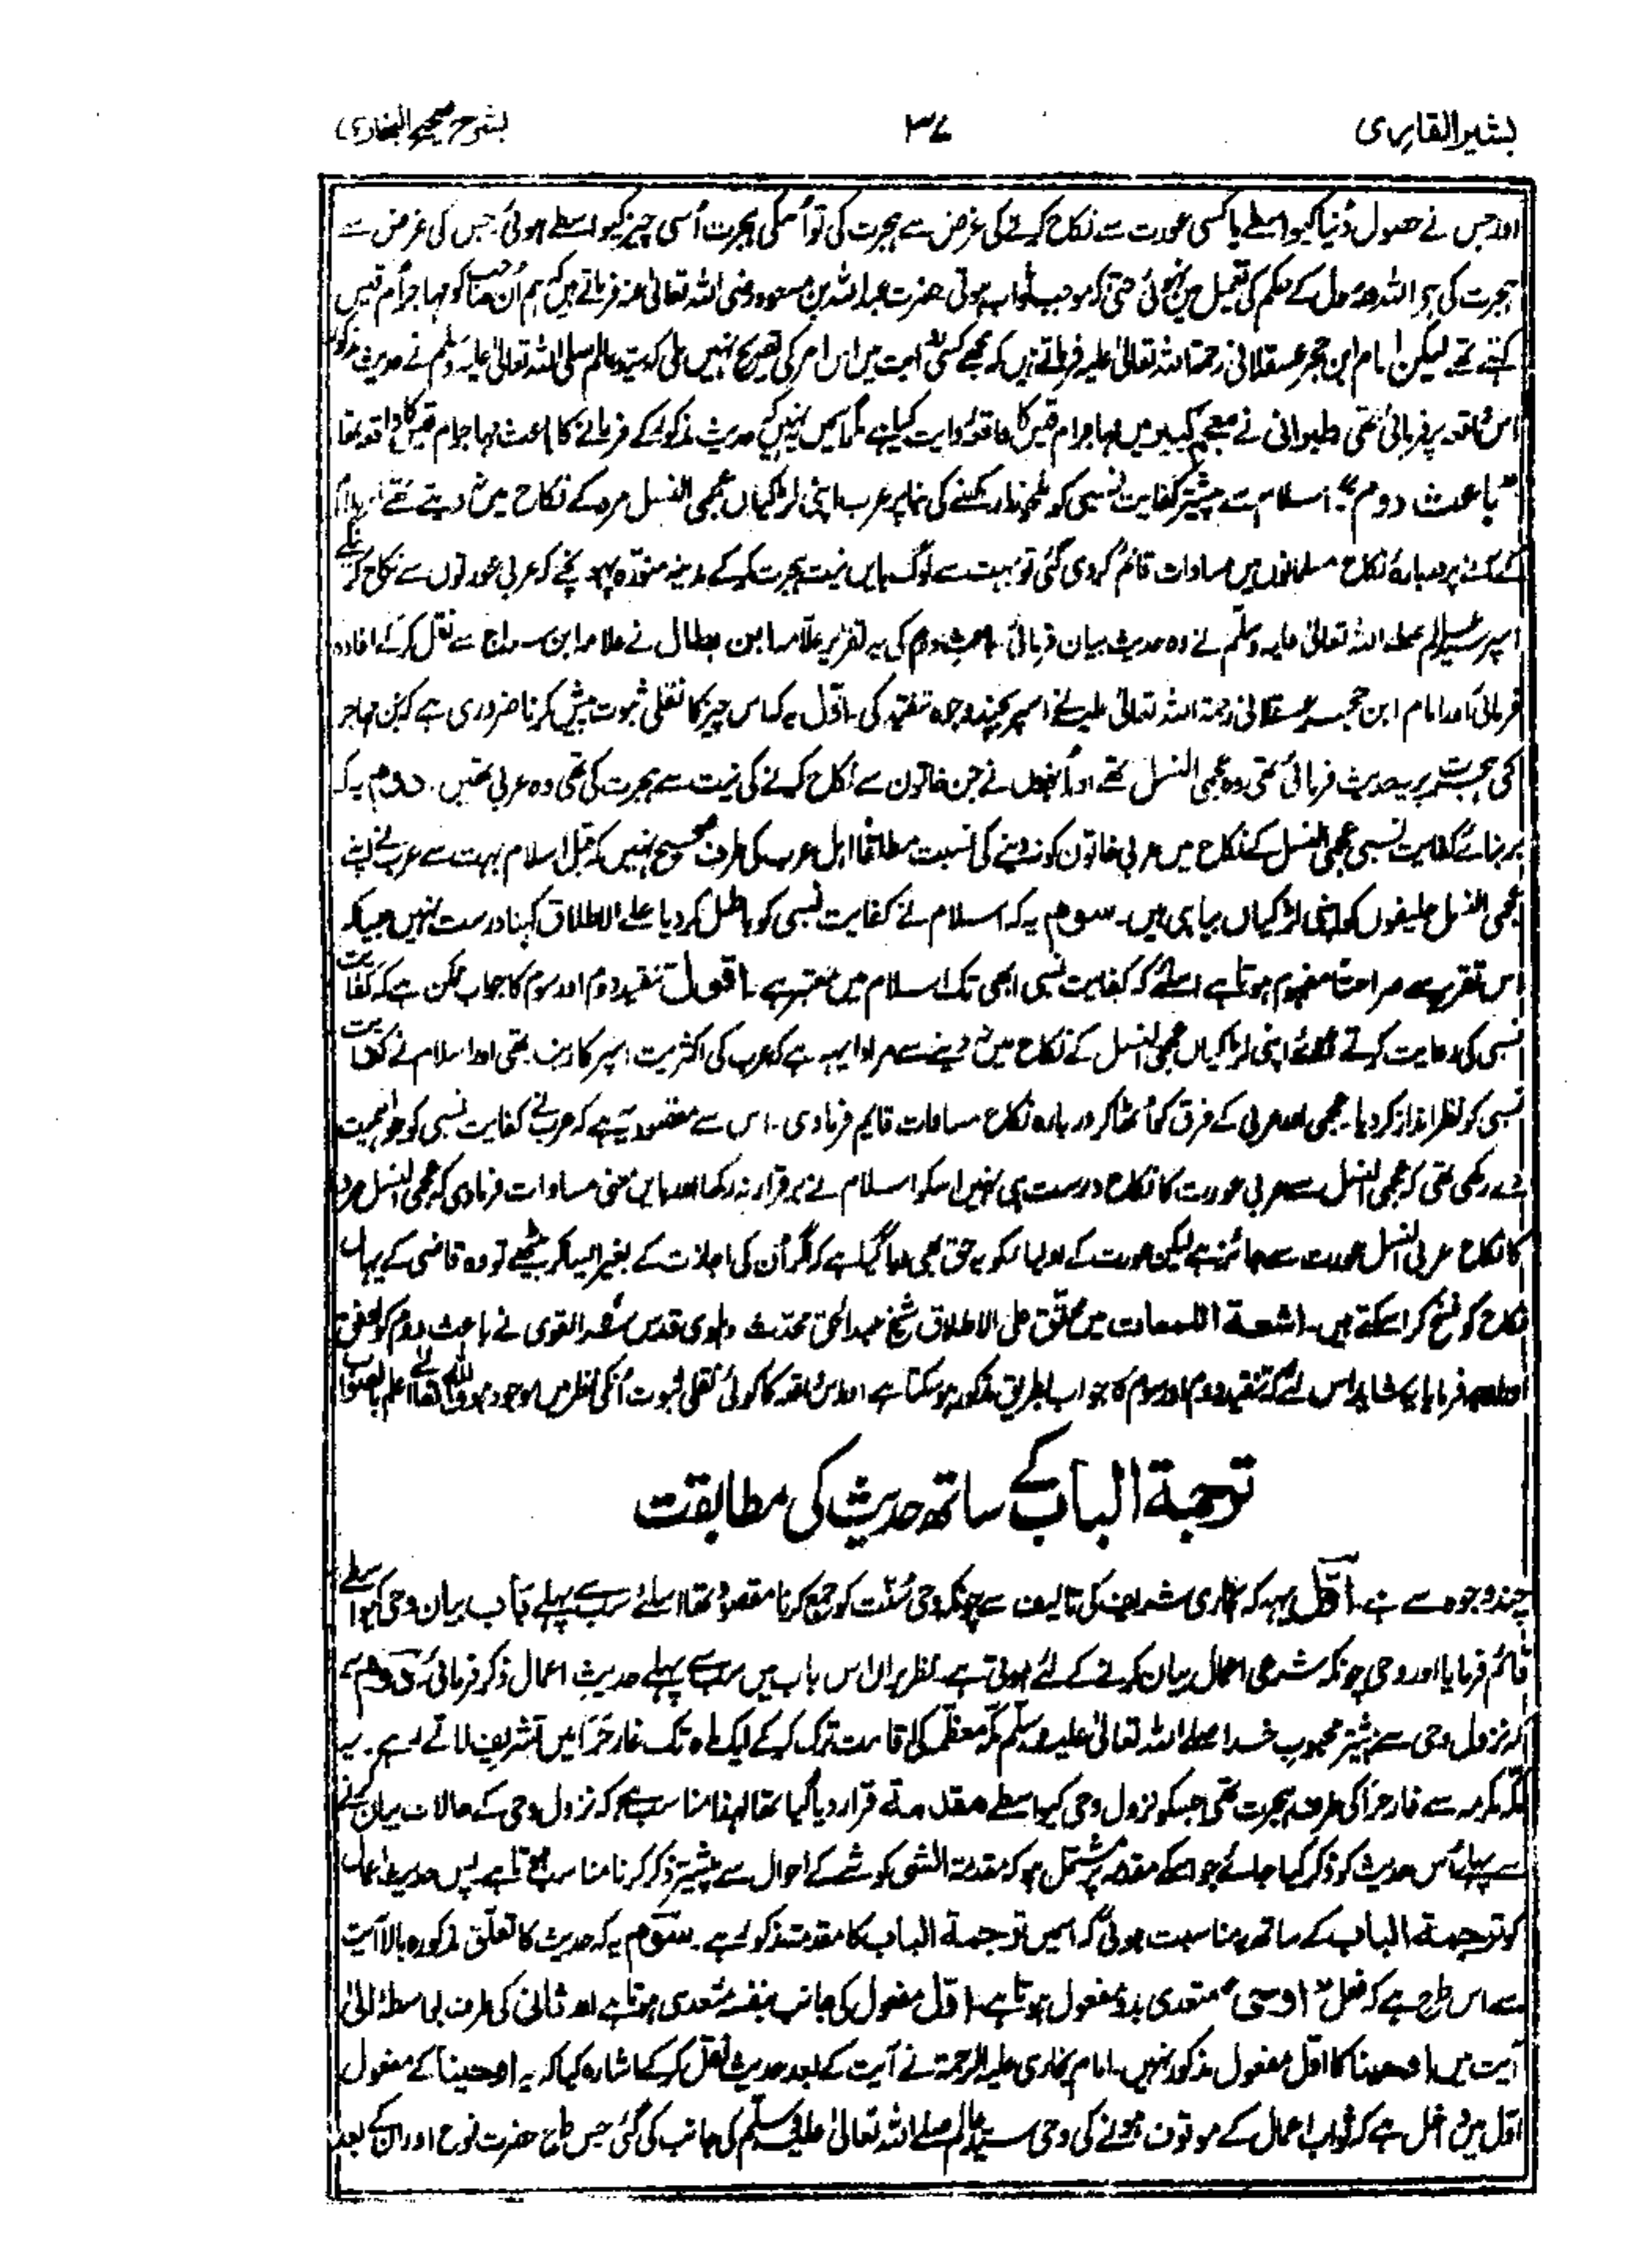 بشیر القاری ۳۷ بشرح صحیح البخاری
اور جس نے حصول دُنیا کیواسطے یا کسی عورت سے نکاح کرنے کی غرض سے ہجرت کی تو اُسکی ہجرت اُسی چیز کیواسطے ہوئی جس کی غرض سے
ہجرت کی ہو اللہ و رسول کے حکم کی تعمیل میں نہوئی حتٰی کہ موجب ثواب ہوتی حضرت عبداللہ بن مسعود رضی اللہ تعالیٰ عنہ فرماتے ہیں کہ ہم اُن صاحب کو مہاجر اُم قیس
کہتے تھے لیکن امام ابن حجر عسقلانی رحمۃ اللہ تعالیٰ علیہ فرماتے ہیں کہ مجھے کسی روایت میں اس امر کی تصریح نہیں ملی کہ سید عالم صلی اللہ تعالیٰ علیہ وسلم نے حدیث مذکور
اس واقعہ پر فرمائی تھی طبرانی نے معجم کبیر میں مہاجر ام قیس کا واقعہ روایت کیا ہے مگر اسمیں نہیں کہ حدیث مذکور کے فرمانے کا باعث مہاجر ام قیس کا واقعہ تھا
"باعث دوم": اسلام سے پیشتر کفایت نسبی کو ملحوظ رکھنے کی بنا پر عرب اپنی لڑکیاں عجمی النسل مرد کے نکاح میں نہ دیتے تھے اسلام
کے آنے پر دربارۂ نکاح مسلمانوں میں مساوات قائم کردی گئی تو بہت سے لوگ بایں نیت ہجرت کرکے مدینہ منورہ پہونچے کہ عربی عورتوں سے نکاح کرینگے
اسپر سید عالم صلے اللہ تعالیٰ علیہ وسلم نے وہ حدیث بیان فرمائی۔ باعث دوم کی یہ تقریر علامہ ابن بطال نے علامہ ابن سراج سے نقل کرکے افادہ
فرمائی اور امام ابن حجر عسقلانی رحمۃ اللہ تعالیٰ علیہ نے اسپر بچند وجوہ تنقید کی۔ اوّل یہ کہ اس چیز کا نقلی ثبوت پیش کرنا ضروری ہے کہ جن مہاجر
کی ہجرت پر یہ حدیث فرمائی تھی وہ عجمی النسل تھے اور اُنہوں نے جن خاتون سے نکاح کرنے کی نیت سے ہجرت کی تھی وہ عربی تھیں۔ دوم یہ کہ
بربنائے کفایت نسبی عجمی النسل کے نکاح میں عربی خاتون کو نہ دینے کی نسبت مطلقاً اہل عرب کی طرف صحیح نہیں کہ قبل اسلام بہت سے عرب نے اپنے
عجمی النسل حلیفوں کو اپنی لڑکیاں بیاہی ہیں۔ سوم یہ کہ اسلام نے کفایت نسبی کو باطل کردیا علے الاطلاق کہنا درست نہیں جیساکہ
اس تقریر سے صراحتاً مفہوم ہوتا ہے اسلئے کہ کفایت نسبی ابھی تک اسلام میں معتبر ہے۔ اقول تنقید دوم اور سوم کا جواب ممکن ہے کہ کفایت
نسبی کی رعایت کرتے ہوئے اپنی لڑکیاں عجمی النسل کے نکاح میں نہ دینے سے مراد یہ ہے کہ عرب کی اکثریت اسپر کاربند تھی اور اسلام نے کفایت
نسبی کو نظر انداز کردیا۔ عجمی اور عربی کے فرق کو اُٹھا کر دربارہ نکاح مساوات قایم فرمادی۔ اس سے مقصود یہ ہے کہ عرب نے کفایت نسبی کو جو اہمیت
دے رکھی تھی کہ عجمی النسل سے عربی عورت کا نکاح درست ہی نہیں اسکو اسلام نے برقرار نہ رکھا اور بایں معنی مساوات فرمادی کہ عجمی النسل مرد
کا نکاح عربی النسل عورت سے جائز ہے لیکن عورت کے اولیا کو یہ حق بھی دیا گیا ہے کہ اگر اُن کی اجازت کے بغیر ایسا کر بیٹھے تو وہ قاضی کے یہاں
نکاح کو فسخ کراسکتے ہیں۔ اشعۃ اللمعات میں محقق علی الاطلاق شیخ عبدالحق محدث دہلوی قدس سرہ القوی نے باعث دوم کو
فرمایا یہ شاید اس لئے کہ تنقید دوم اور سوم کا جواب بطریق مذکور ہوسکتا ہے اور اس واقعہ کا کوئی نقلی ثبوت اُنکی نظر میں موجود ہو واللہ تعالیٰ اعلم بالصواب
ترجمۃ الباب کے ساتھ حدیث کی مطابقت
چند وجوہ سے ہے۔ اوّل یہ کہ بخاری شریف کی تالیف سے چونکہ وحی سُنّت کو جمع کرنا مقصود تھا اسلئے سب سے پہلے باب بیان وحی کیواسطے
قائم فرمایا اور وحی چونکہ شرعی اعمال بیان کرنے کے لئے ہوتی ہے نظر براں اس باب میں سب سے پہلے حدیث اعمال ذکر فرمائی۔ دوم یہ
کہ نزول وحی سے پیشتر محبوب خدا صلے اللہ تعالیٰ علیہ وسلم مکہ معظمہ کی اقامت ترک کرکے ایک ماہ تک غار حرا میں تشریف لاتے رہے۔ یہ
مکہ مکرمہ سے غار حرا کی طرف ہجرت تھی جسکو نزول وحی کیواسطے مقدمۃ قرار دیا گیا تھا لہذا مناسب ہے کہ نزول وحی کے حالات بیان کرنے
سے پہلے اُس حدیث کو ذکر کیا جائے جو اسکے مقدمہ پر مشتمل ہو کہ مقدمۃ الشئی کو شے کے احوال سے پیشتر ذکر کرنا مناسب ہوتا ہے پس حدیث اعمال
کو ترجمۃ الباب کے ساتھ یہ مناسبت ہوئی کہ اسمیں ترجمۃ الباب کا مقدمہ مذکور ہے۔ سوم یہ کہ حدیث کا تعلق مذکورہ بالا آیت
سے اس طرح ہے کہ فعل "اوحی" متعدی بدو مفعول ہوتا ہے۔ اوّل مفعول کی جانب بنفسہ متعدی ہوتا ہے اور ثانی کی طرف بواسطۂ الیٰ
آیت میں اوحینا کا اوّل مفعول مذکور نہیں۔ امام بخاری علیہ الرحمۃ نے آیت کے بعد حدیث نقل کرکے اشارہ کیا کہ یہ اوحینا کے مفعول
اوّل میں داخل ہے کہ ثواب اعمال کے موقوف ہونے کی وحی سید عالم صلے اللہ تعالیٰ علیہ وسلم کی جانب کی گئی جس طرح حضرت نوح اور ان کے بعد